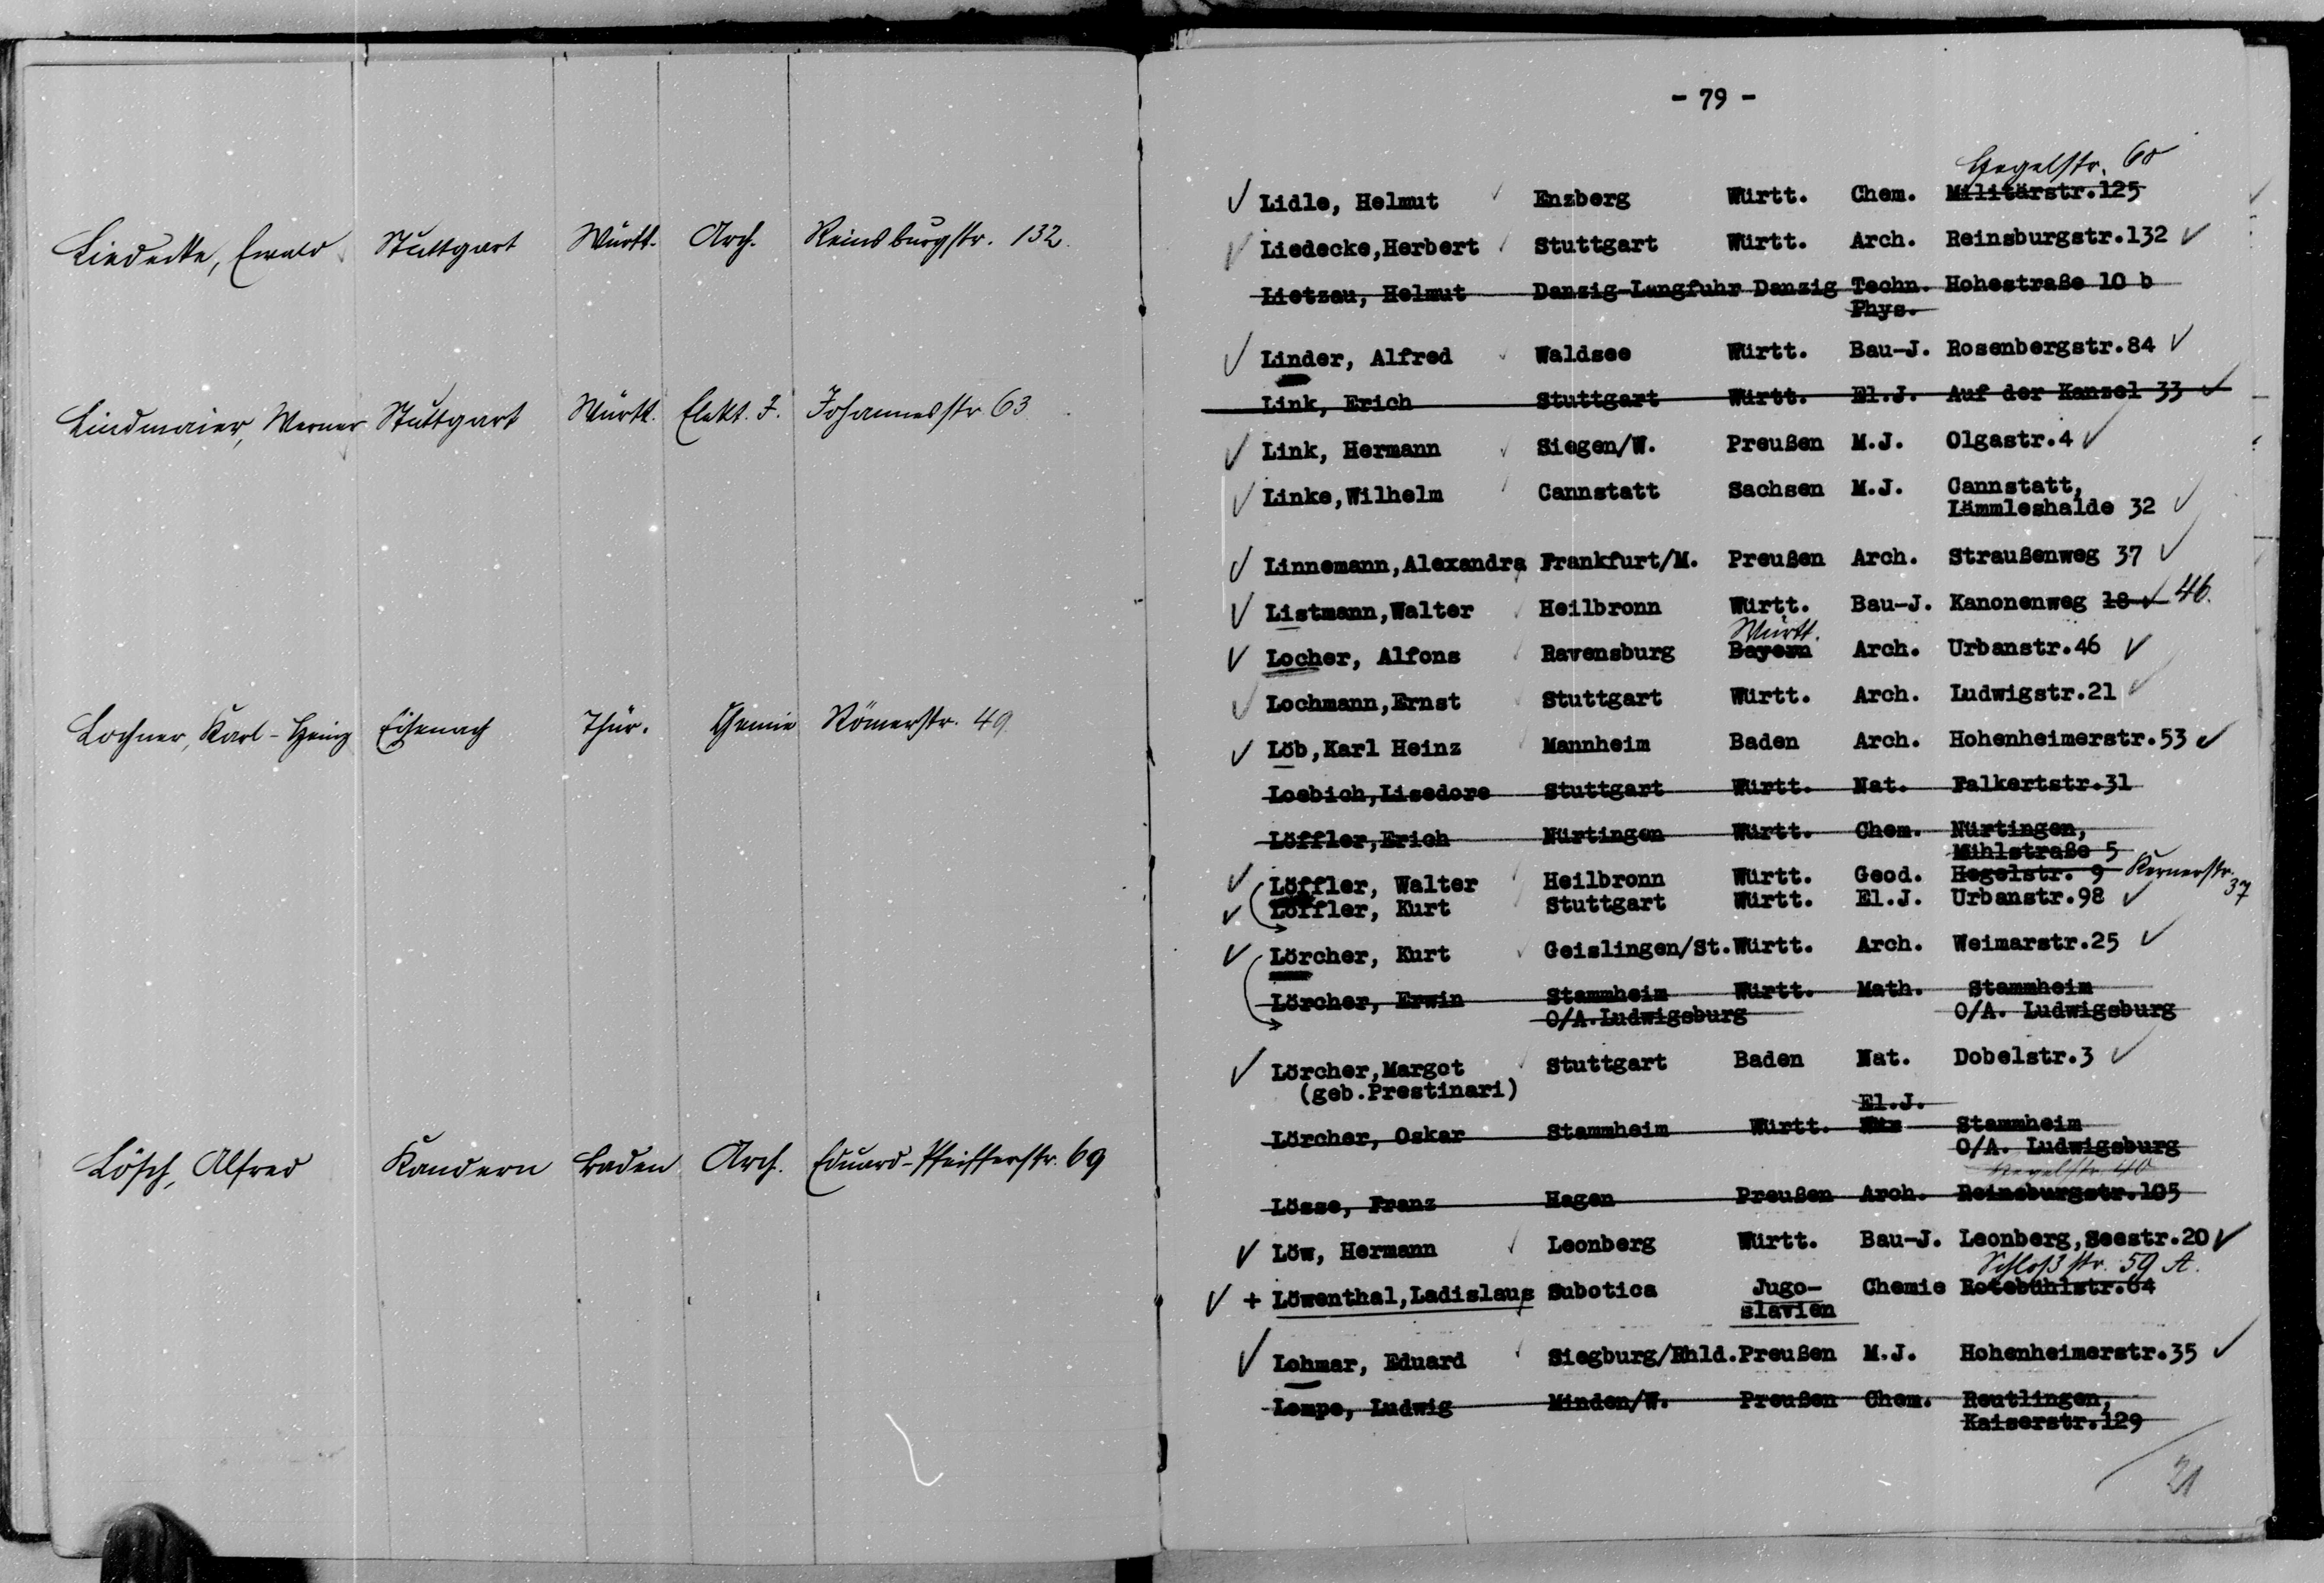 Liedecke, Ewald Stuttgart Württ. Arch. Reinsburgstr. 132.
Lindmaier, Werner Stuttgart Württ. Elekt. I. Johannesstr. 63
Lochner, Karl-Heinz Eisenach Thür. Chemie Römerstr. 49
Lösch, Alfred Kandern Baden Arch. Eduard-Pfeifferstr. 69
- 79 -
Hegelstr. 60
Lidle, Helmut Enzberg Württ. Chem. Militärstr.125
Liedecke,Herbert Stuttgart Württ. Arch. Reinsburgstr.132
Lietzau, Helmut Danzig-Langfuhr Danzig Techn. Hohestraße 10 b
Phys.
Linder, Alfred Waldsee Württ. Bau-J. Rosenbergstr.84
Link, Erich Stuttgart Württ. El.J. Auf der Kanzel 33
Link, Hermann Siegen/W. Preußen M.J. Olgastr.4
Linke,Wilhelm Cannstatt Sachsen M.J. Cannstatt,
Lämmleshalde 32
Linnemann,Alexandra Frankfurt/M. Preußen Arch. Straußenweg 37
Listmann,Walter Heilbronn Württ. Bau-J. Kanonenweg 18 46.
Württ.
Locher, Alfons Ravensburg Bayern Arch. Urbanstr.46
Lochmann,Ernst Stuttgart Württ. Arch. Ludwigstr.21
Löb,Karl Heinz Mannheim Baden Arch. Hohenheimerstr.53
Loebich,Lisedore Stuttgart Württ. Nat. Falkertstr.31
Löffler,Erich Nürtingen Württ. Chem. Nürtingen,
Mühlstraße 5
Löffler, Walter Heilbronn Württ. Geod. Hegelstr. 9 Kernerstr. 37
Löffler, Kurt Stuttgart Württ. El.J. Urbanstr.98
Lörcher, Kurt Geislingen/St.Württ. Arch. Weimarstr.25
Lörcher, Erwin Stammheim Württ. Math. Stammheim
O/A.Ludwigsburg O/A. Ludwigsburg
Lörcher,Margot Stuttgart Baden Nat. Dobelstr.3
(geb.Prestinari)
El.J.
Lörcher, Oskar Stammheim Württ. Stammheim
O/A. Ludwigsburg
40
Lösse, Franz Hagen Preußen Arch. Reinsburgstr.105
Löw, Hermann Leonberg Württ. Bau-J. Leonberg,Seestr.20
Schloßstr. 59 A.
+ Löwenthal,Ladislaus Subotica Jugo- Chemie Rotebühlstr.64
slavien
Lohmar, Eduard Siegburg/Rhld.Preußen M.J. Hohenheimerstr.35
Lompe, Ludwig Minden/W. Preußen Chem. Reutlingen,
Kaiserstr.129
21